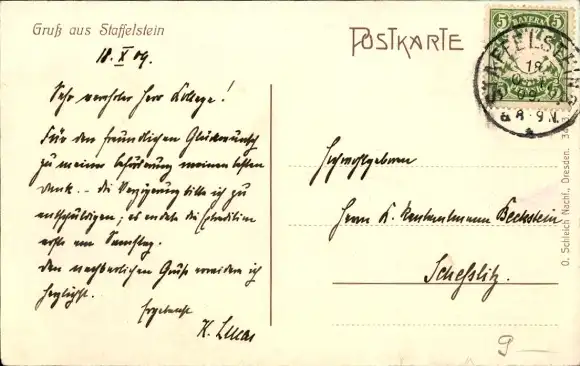 Gruß aus Staffelstein
18. X 09.
Sehr verehrter Herr Kollege!
Für den freundlichen Glückwunsch
zu meiner Beförderung meinen besten
Dank. – Die Verzögerung bitte ich zu
entschuldigen; es endete die
erst am Samstag.
Den nachbarlichen Gruß erwidere ich
herzlichst.
Ergebenst
K. Lucas
POSTKARTE
5 BAYERN 5
STAFFELSTEIN
18
OKT
09
8-9 N.
Hochwohlgeboren
Herrn K. Rentamtmann Beckstein
Scheßlitz.
O. Schleich Nachf., Dresden.
9